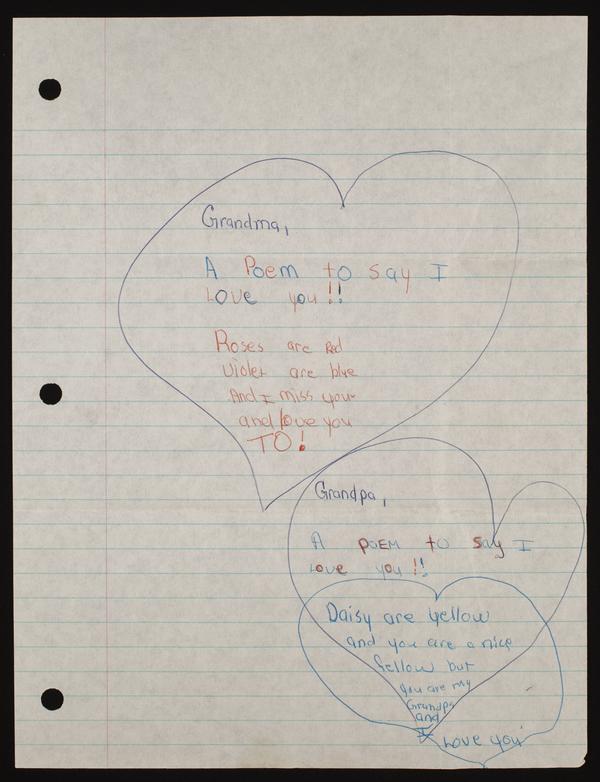 Grandma,
A Poem to say I
Love you!!
Roses are Red
Violet are blue
And I miss you
and love you
TO!
Grandpa,
A POEM to say I
Love you!!
Daisy are yellow
and you are a nice
fellow but
you are my
Grandpa
and
I Love you